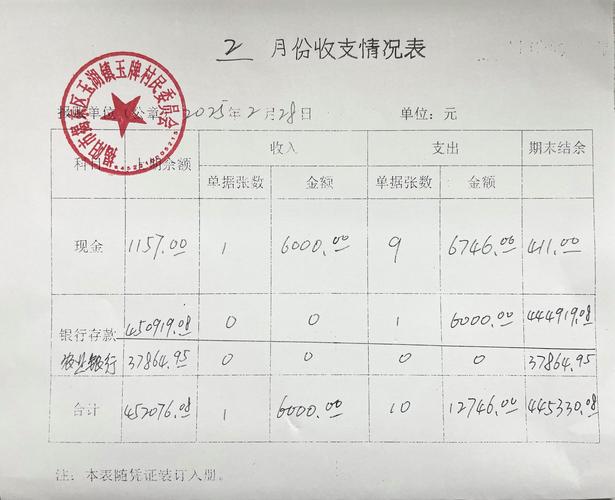 2 月份收支情况表
揭阳市揭东区玉湖镇玉牌村民委员会
445210005215
报账单位(公章) 2025年2月28日 单位:元
科目 上期余额 收入 支出 期末结余
单据张数 金额 单据张数 金额
现金 1157.00 1 6000.00 9 6746.00 411.00
银行存款 450919.08 0 0 1 6000.00 444919.08
农业银行 37864.95 0 0 0 0 37864.95
合计 452076.08 1 6000.00 10 12746.00 445330.08
注:本表随凭证装订入册。